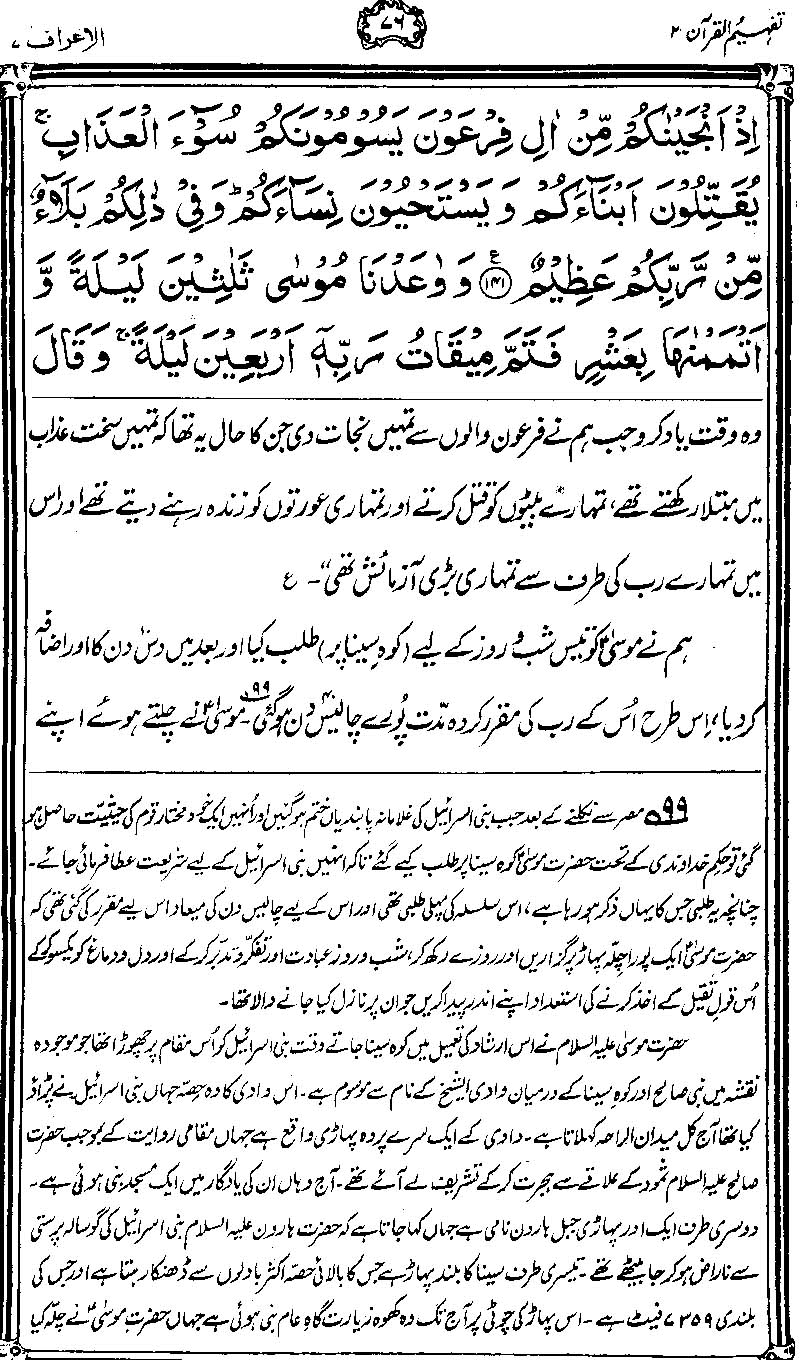 تفہیم القرآن ۲
۷۶
الاعراف ۷
اِذْ اَنْجَيْنٰكُمْ مِّنْ اٰلِ فِرْعَوْنَ يَسُوْمُوْنَكُمْ سُوْٓءَ الْعَذَابِ ۚ
يُقَتِّلُوْنَ اَبْنَآءَكُمْ وَ يَسْتَحْيُوْنَ نِسَآءَكُمْ ؕ وَفِيْ ذٰلِكُمْ بَلَآءٌ
مِّنْ رَّبِّكُمْ عَظِيْمٌ ۧ ﴿۱۴۱﴾ وَ وٰعَدْنَا مُوْسٰى ثَلٰثِيْنَ لَيْلَةً وَّ
اَتْمَمْنٰهَا بِعَشْرٍ فَتَمَّ مِيْقَاتُ رَبِّهٖٓ اَرْبَعِيْنَ لَيْلَةً ۚ وَ قَالَ
وہ وقت یاد کرو جب ہم نے فرعون والوں سے تمہیں نجات دی جن کا حال یہ تھا کہ تمہیں سخت عذاب
میں مبتلا رکھتے تھے، تمہارے بیٹوں کو قتل کرتے اور تمہاری عورتوں کو زندہ رہنے دیتے تھے اور اس
میں تمہارے رب کی طرف سے تمہاری بڑی آزمائش تھی"۔ ع
ہم نے موسیٰؑ کو تیس شب و روز کے لیے (کوہِ سینا پر) طلب کیا اور بعد میں دس دن کا اور اضافہ
کر دیا، اِس طرح اُس کے رب کی مقرر کردہ مدّت پُورے چالیس دن ہو گئی۔۹۹ موسیٰؑ نے چلتے ہوئے اپنے
۹۹ مصر سے نکلنے کے بعد جب بنی اسرائیل کی غلامانہ پابندیاں ختم ہو گئیں اور اُنہیں ایک خود مختار قوم کی حیثیت حاصل ہو
گئی تو حکمِ خداوندی کے تحت حضرت موسیٰؑ کوہ سینا پر طلب کیے گئے تاکہ انہیں بنی اسرائیل کے لیے شریعت عطا فرمائی جائے۔
چنانچہ یہ طلبی جس کا یہاں ذکر ہو رہا ہے، اس سلسلہ کی پہلی طلبی تھی اور اس کے لیے چالیس دن کی میعاد اس لیے مقرر کی گئی تھی کہ
حضرت موسیٰؑ ایک پورا چلّہ پہاڑ پر گزاریں اور روزے رکھ کر، شب و روز عبادت اور تفکّر و تدبّر کر کے اور دل و دماغ کو یکسو کر کے
اُس قولِ ثقیل کے اخذ کرنے کی استعداد اپنے اندر پیدا کریں جو ان پر نازل کیا جانے والا تھا۔
حضرت موسیٰ علیہ السلام نے اس ارشاد کی تعمیل میں کوہ سینا جاتے وقت بنی اسرائیل کو اُس مقام پر چھوڑا تھا جو موجودہ
نقشہ میں نبی صالح اور کوہِ سینا کے درمیان وادی الشیخ کے نام سے موسوم ہے۔ اس وادی کا وہ حصّہ جہاں بنی اسرائیل نے پڑاؤ
کیا تھا آج کل میدان الراحہ کہلاتا ہے۔ وادی کے ایک سرے پر وہ پہاڑی واقع ہے جہاں مقامی روایت کے بموجب حضرت
صالح علیہ السلام ثمود کے علاقے سے ہجرت کر کے تشریف لے آئے تھے۔ آج وہاں ان کی یادگار میں ایک مسجد بنی ہوئی ہے۔
دوسری طرف ایک اور پہاڑی جبل ہارون نامی ہے جہاں کہا جاتا ہے کہ حضرت ہارون علیہ السلام بنی اسرائیل کی گوسالہ پرستی
سے ناراض ہو کر جا بیٹھے تھے۔ تیسری طرف سینا کا بلند پہاڑ ہے جس کا بالائی حصّہ اکثر بادلوں سے ڈھنکا رہتا ہے اور جس کی
بلندی ۷۳۵۹ فیٹ ہے۔ اس پہاڑ کی چوٹی پر آج تک وہ کھوہ زیارت گاہِ عام بنی ہوئی ہے جہاں حضرت موسیٰؑ نے چلّہ کیا